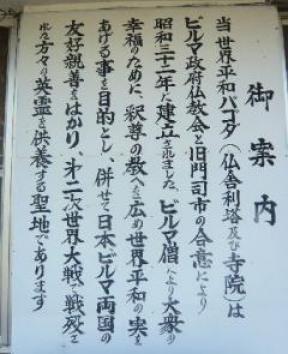 御案内
当世界平和パゴダ(仏舎利塔及び寺院)は
ビルマ政府仏教会と旧門司市の合意により
昭和三十二年に建立されました。ビルマ僧により大衆の
幸福のために、釈尊の教へを広め世界平和の実を
あげる事を目的とし、併せて日本、ビルマ両国の
友好親善をはかり、才二次世界大戦で戦歿さ
れた方々の英霊を供養する聖地であります